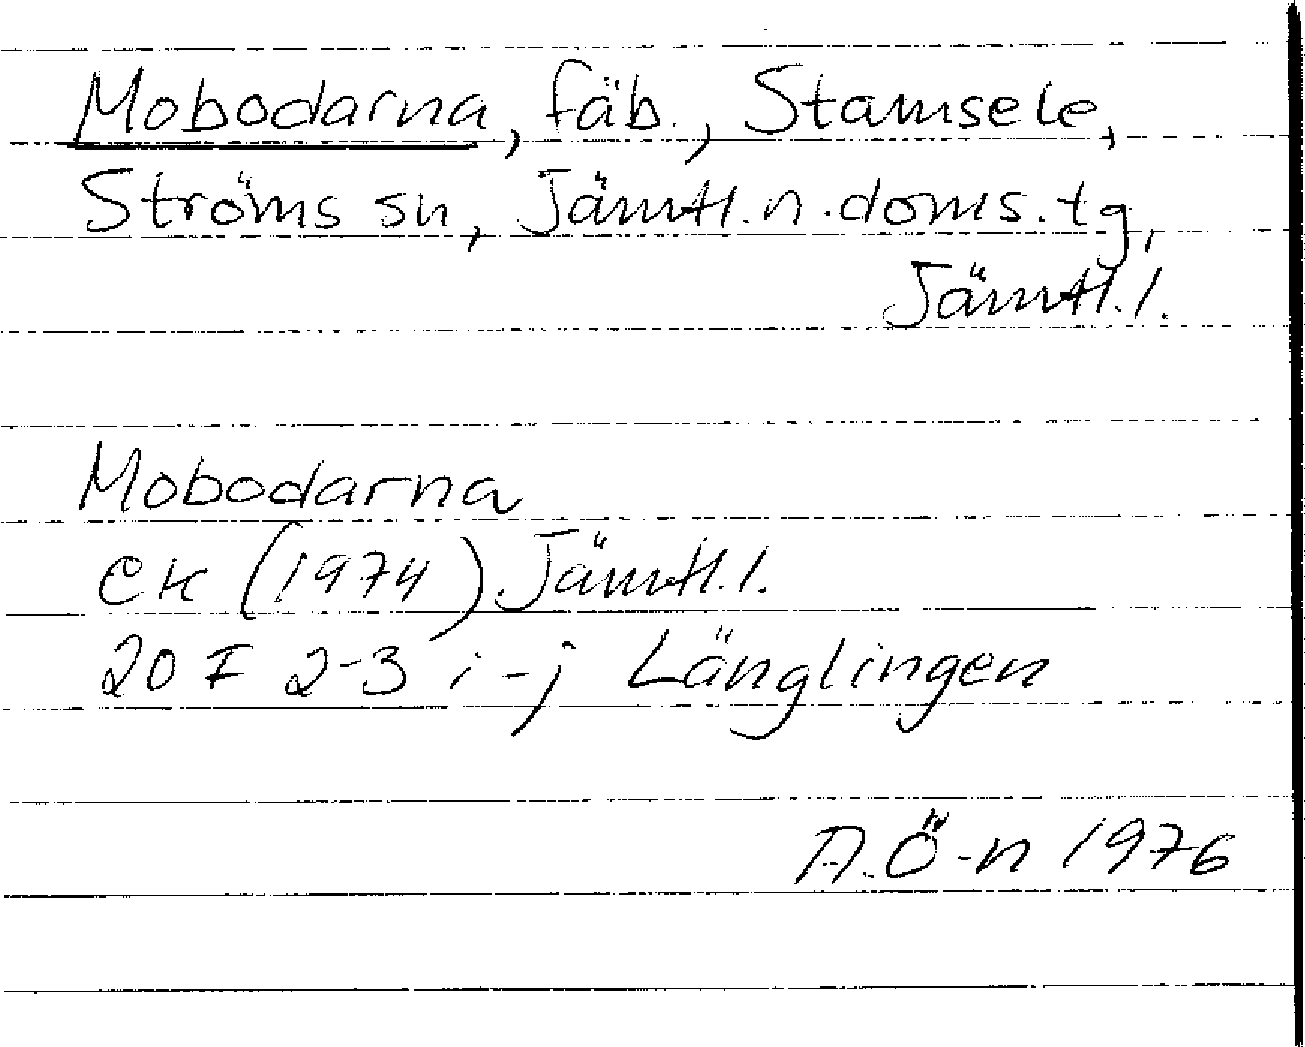 Mobodarna, fäb., Stamsele,
Ströms sn, Jämtl.n.doms.tg,
Jämtl.l.
Mobodarna
ek (1974). Jämtl.l.
20 F 2-3 i-j Länglingen
A.Ö-n 1976